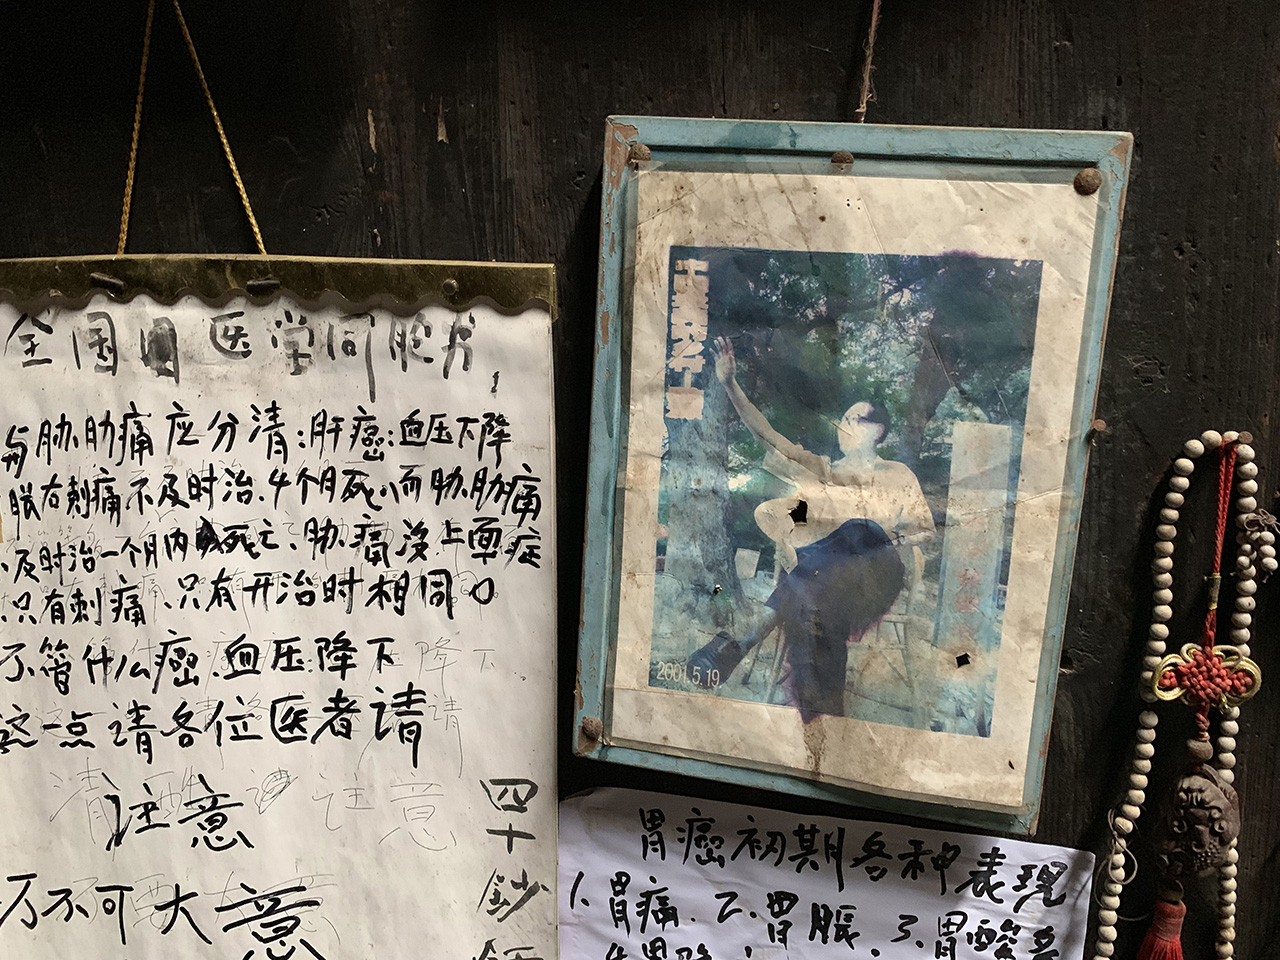 全国医学同胞为
与肋、肋痛应分清:肝癌:血压下降
胀右刺痛不及时治.4个月死.而肋.肋痛
及时治一个月内死亡、肋.痛没上面症
只有刺痛、只有开治时相同
不管什么癌.血压.降下
这一点请各位医者请
注意
万不可大意
四十
2001.5.19.
胃癌初期各种表现
1.胃痛.2.胃胀.3.胃酸多